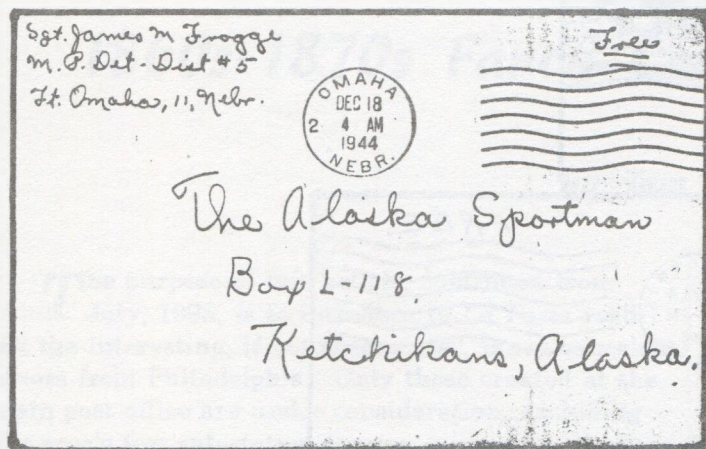 Sgt. James M Frogge
M. P. Det. Dist #5
Ft. Omaha, 11, Nebr.
Free
OMAHA
DEC 18
2 4 AM
1944
NEBR.
The Alaska Sportman
Box L-118.
Ketchikans, Alaska.